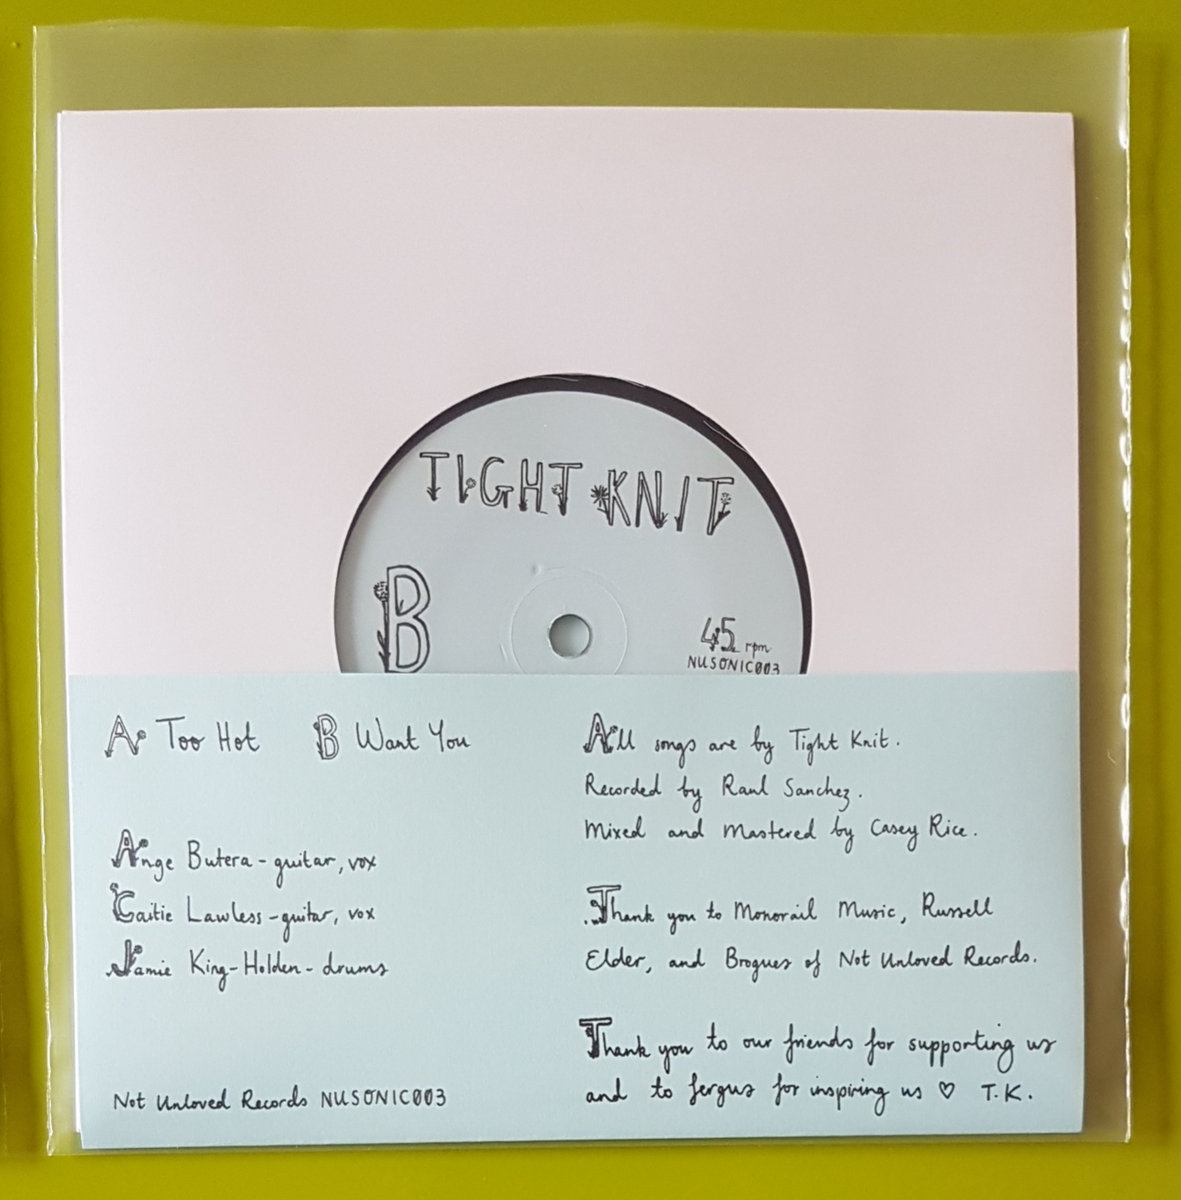 TIGHT KNIT
B
45 rpm
NUSONIC003
A Too Hot B Want You
Ange Butera - guitar, vox
Caitie Lawless - guitar, vox
Jamie King-Holden - drums
Not Unloved Records NUSONIC003
All songs are by Tight Knit.
Recorded by Raul Sanchez.
Mixed and Mastered by Casey Rice.
Thank you to Monorail Music, Russell
Elder, and Brogues of Not Unloved Records.
Thank you to our friends for supporting us
and to fergus for inspiring us ♡ T.K.